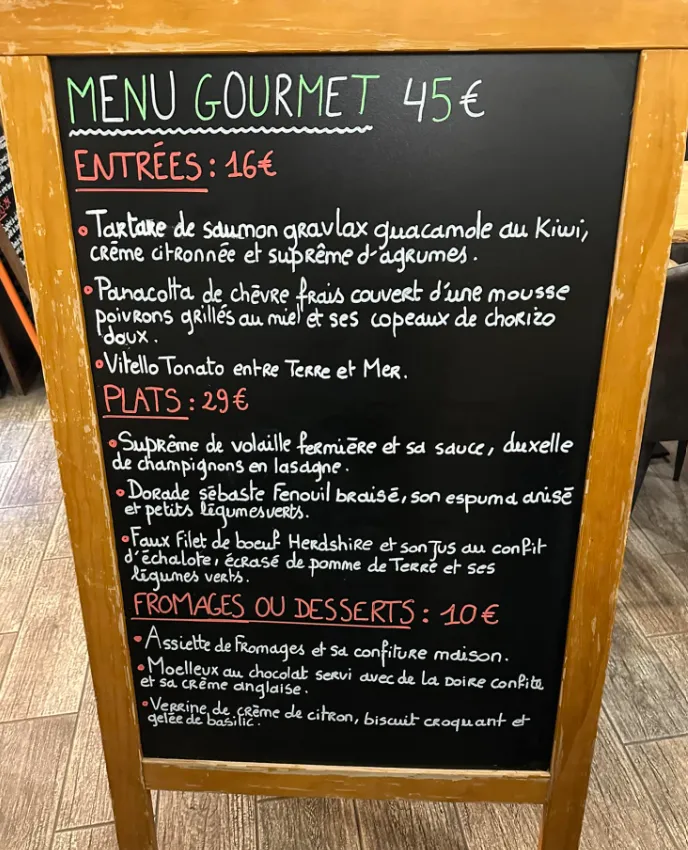 MENU GOURMET 45€
ENTRÉES : 16€
Tartare de saumon gravlax guacamole au Kiwi,
crème citronnée et suprême d'agrumes.
Panacotta de chèvre frais couvert d'une mousse
poivrons grillés au miel et ses copeaux de chorizo
doux.
Vitello Tonato entre Terre et Mer.
PLATS : 29€
Suprême de volaille fermière et sa sauce, duxelle
de champignons en lasagne.
Dorade sébaste Fenouil braisé, son espuma anisé
et petits légumes verts.
Faux Filet de boeuf Herdshire et son Jus au confit
d'échalote, écrasé de pomme de Terre et ses
légumes verts.
FROMAGES OU DESSERTS : 10€
Assiette de Fromages et sa confiture maison.
Moelleux au chocolat servi avec de la Doire confite
et sa crème anglaise.
Verrine de crème de citron, biscuit croquant et
gelée de basilic.